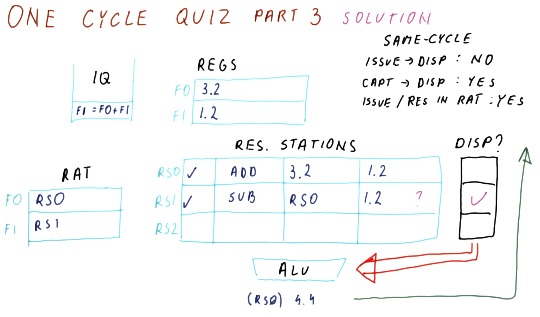 ONE CYCLE QUIZ PART 3 SOLUTION
SAME-CYCLE
ISSUE → DISP : NO
CAPT → DISP : YES
ISSUE / RES IN RAT : YES
IQ
F1 = F0+F1
REGS
F0 3.2
F1 1.2
RES. STATIONS
DISP?
RS0 ✓ ADD 3.2 1.2
RS1 ✓ SUB RS0 1.2 ? ✓
RS2
RAT
F0 RS0
F1 RS1
ALU
(RS0) 4.4